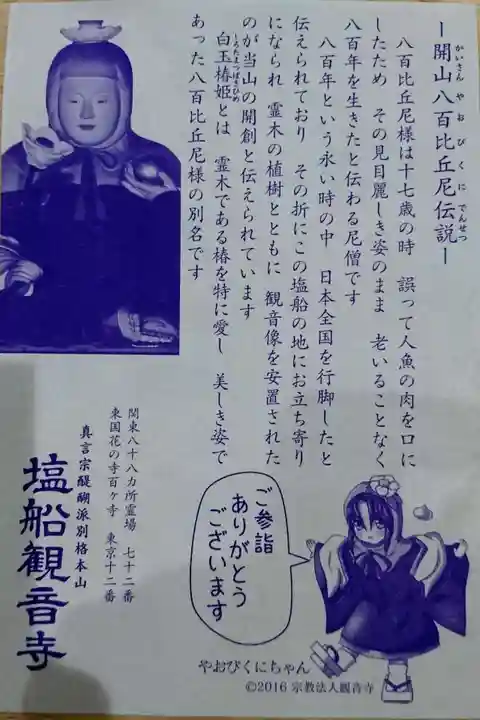 ―開山八百比丘尼伝説―
かいさん やおびくに でんせつ
八百比丘尼様は十七歳の時　誤って人魚の肉を口に
したため　その見目麗しき姿のまま　老いることなく
八百年を生きたと伝わる尼僧です
八百年という永い時の中　日本全国を行脚したと
伝えられており　その折にこの塩船の地にお立ち寄り
になられ　霊木の植樹とともに　観音像を安置された
のが当山の開創と伝えられています
白玉椿姫とは　霊木である椿を特に愛し　美しき姿で
しろたまつばきひめ
あった八百比丘尼様の別名です
ご参詣
ありがとう
ございます
やおびくにちゃん
©2016 宗教法人観音寺
関東八十八カ所霊場　七十二番
東国花の寺百ヶ寺　東京十二番
真言宗醍醐派別格本山
塩船観音寺